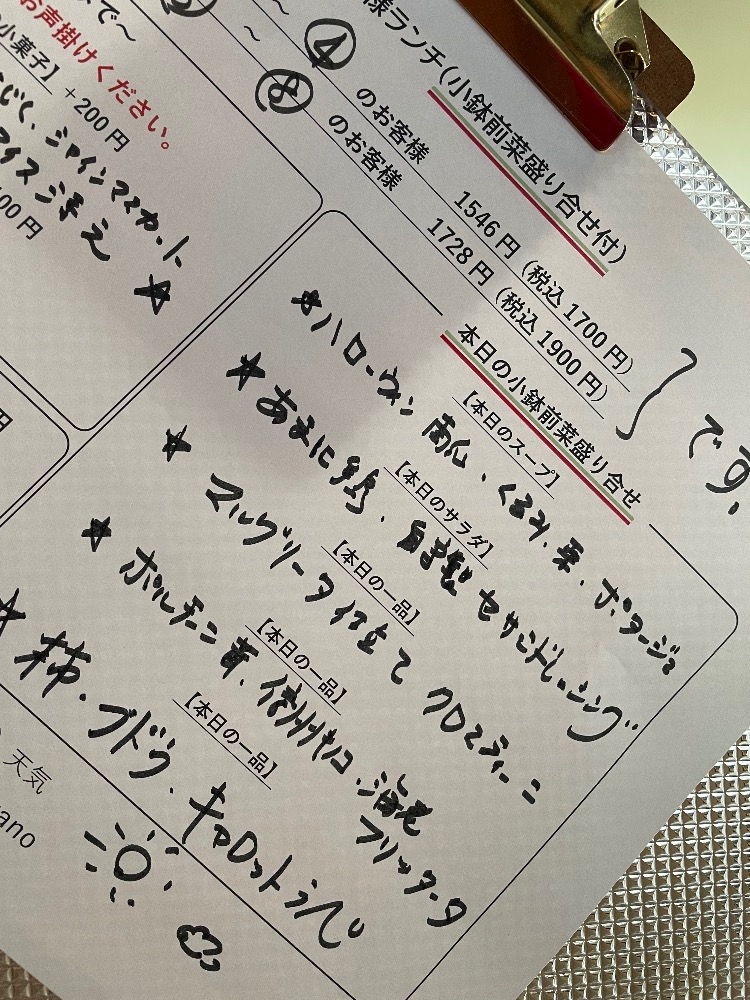 で〜
お声掛けください。
小菓子】 +200円
じく、シャインマスカット
アイス添え ☆
00円
様ランチ(小鉢前菜盛り合せ付)
〜 ④ のお客様 1546円(税込1700円)
〜 ⑧ のお客様 1728円(税込1900円)
です。
本日の小鉢前菜盛り合せ
【本日のスープ】
☆ハローウィン南瓜、くるみ、栗、ポタージュ
【本日のサラダ】
☆あまに鶏、自家製セサミドレッシング
【本日の一品】
☆マルゲリータ仕立て クロスティーニ
【本日の一品】
☆ポルチーニ茸、信州キノコ、海老フリッタータ
【本日の一品】
☆柿、ブドウ、キャロットラペ
天気
ano